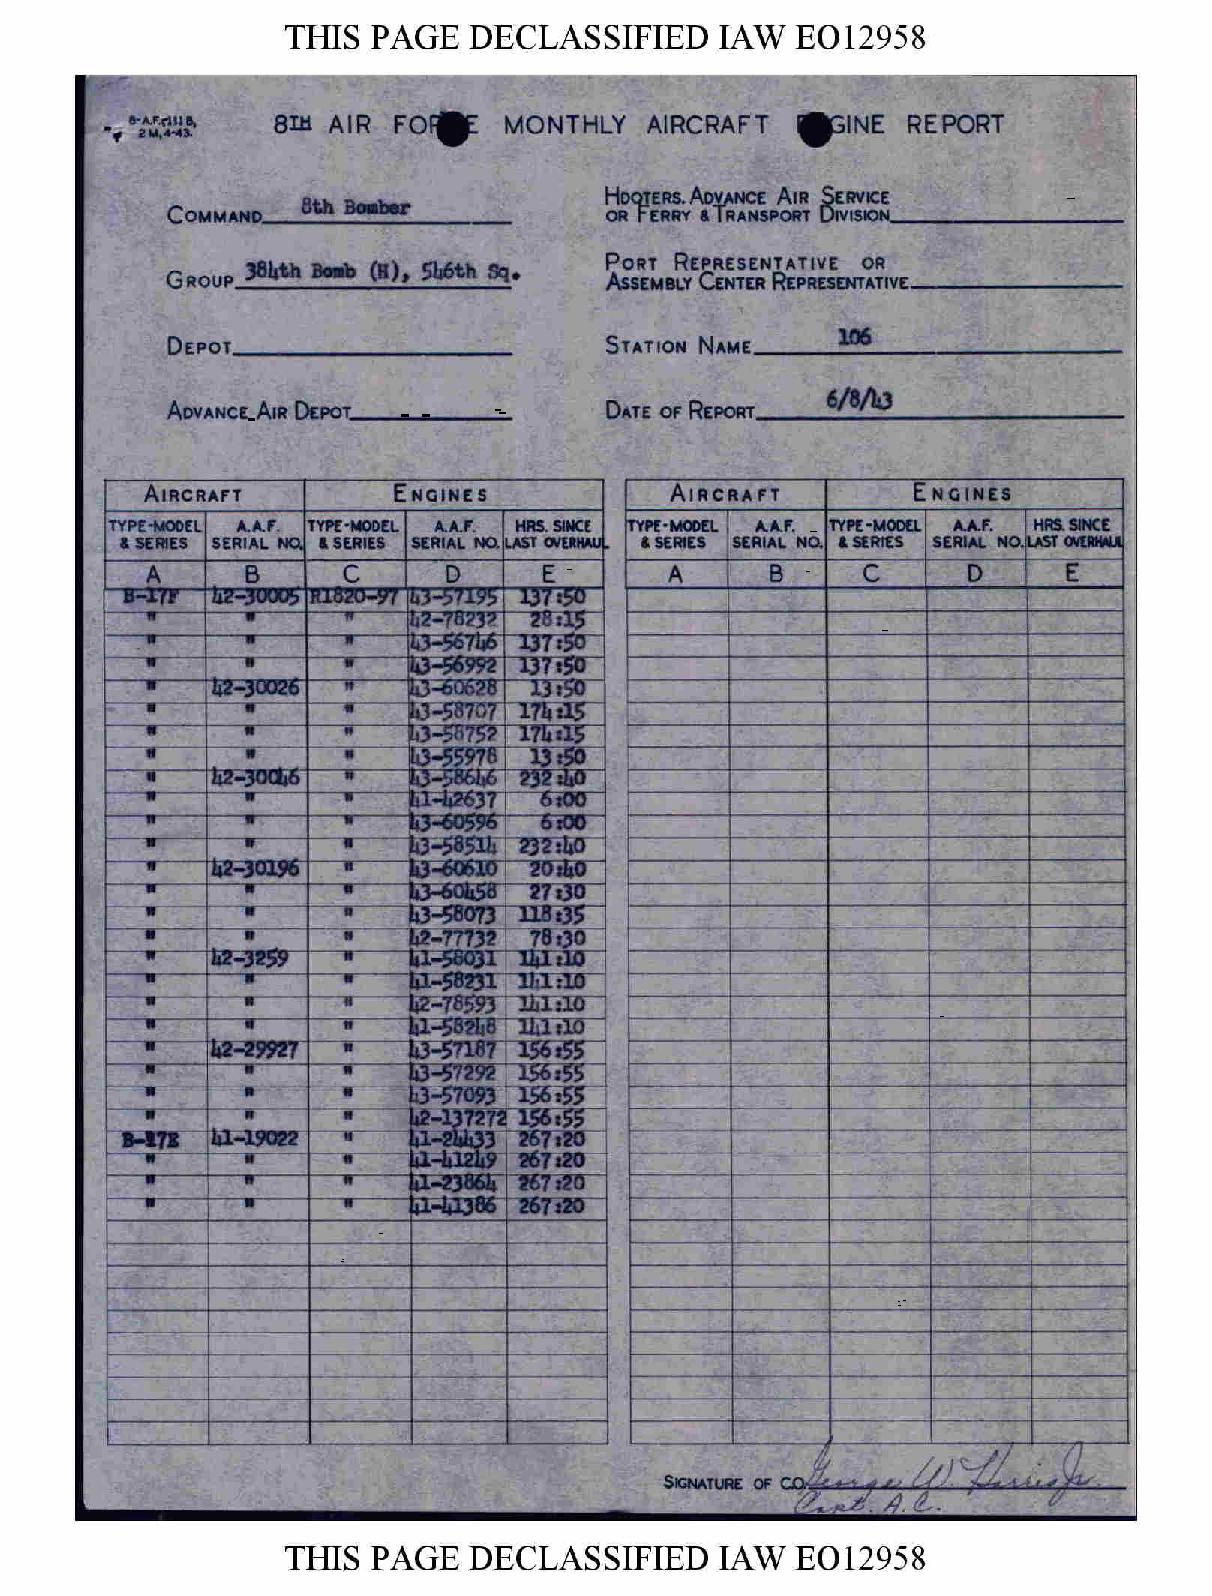 THIS PAGE DECLASSIFIED IAW EO12958
2 M,4-43.
8TH AIR FORCE MONTHLY AIRCRAFT ENGINE REPORT
COMMAND 8th Bomber
HDQTERS. ADVANCE AIR SERVICE
OR FERRY & TRANSPORT DIVISION
GROUP 384th Bomb (H), 546th Sq.
PORT REPRESENTATIVE OR
ASSEMBLY CENTER REPRESENTATIVE
DEPOT
STATION NAME 106
ADVANCE AIR DEPOT
DATE OF REPORT 6/8/43
AIRCRAFT ENGINES AIRCRAFT ENGINES
TYPE-MODEL A.A.F. TYPE-MODEL A.A.F. HRS. SINCE TYPE-MODEL A.A.F. TYPE-MODEL A.A.F. HRS. SINCE
& SERIES SERIAL NO. & SERIES SERIAL NO. LAST OVERHAUL & SERIES SERIAL NO. & SERIES SERIAL NO. LAST OVERHAUL
A B C D E A B C D E
B-17F 42-30005 R1820-97 43-57195 137:50
" " " 42-78232 28:15
" " " 43-56746 137:50
" " " 43-56992 137:50
" 42-30026 " 43-60628 13:50
" " " 43-58707 174:15
" " " 43-58752 174:15
" " " 43-55978 13:50
" 42-30046 " 43-58646 232:40
" " " 41-42637 6:00
" " " 43-60596 6:00
" " " 43-58514 232:40
" 42-30196 " 43-60610 20:40
" " " 43-60458 27:30
" " " 43-58073 118:35
" " " 42-77732 78:30
" 42-3259 " 41-58031 141:10
" " " 41-58231 141:10
" " " 42-78593 141:10
" " " 41-58248 141:10
" 42-29927 " 43-57187 156:55
" " " 43-57292 156:55
" " " 43-57093 156:55
" " " 42-137272 156:55
B-17E 41-19022 " 41-24433 267:20
" " " 41-41249 267:20
" " " 41-23864 267:20
" " " 41-41386 267:20
SIGNATURE OF C.O. George W. Harris Jr.
Capt. A.C.
THIS PAGE DECLASSIFIED IAW EO12958